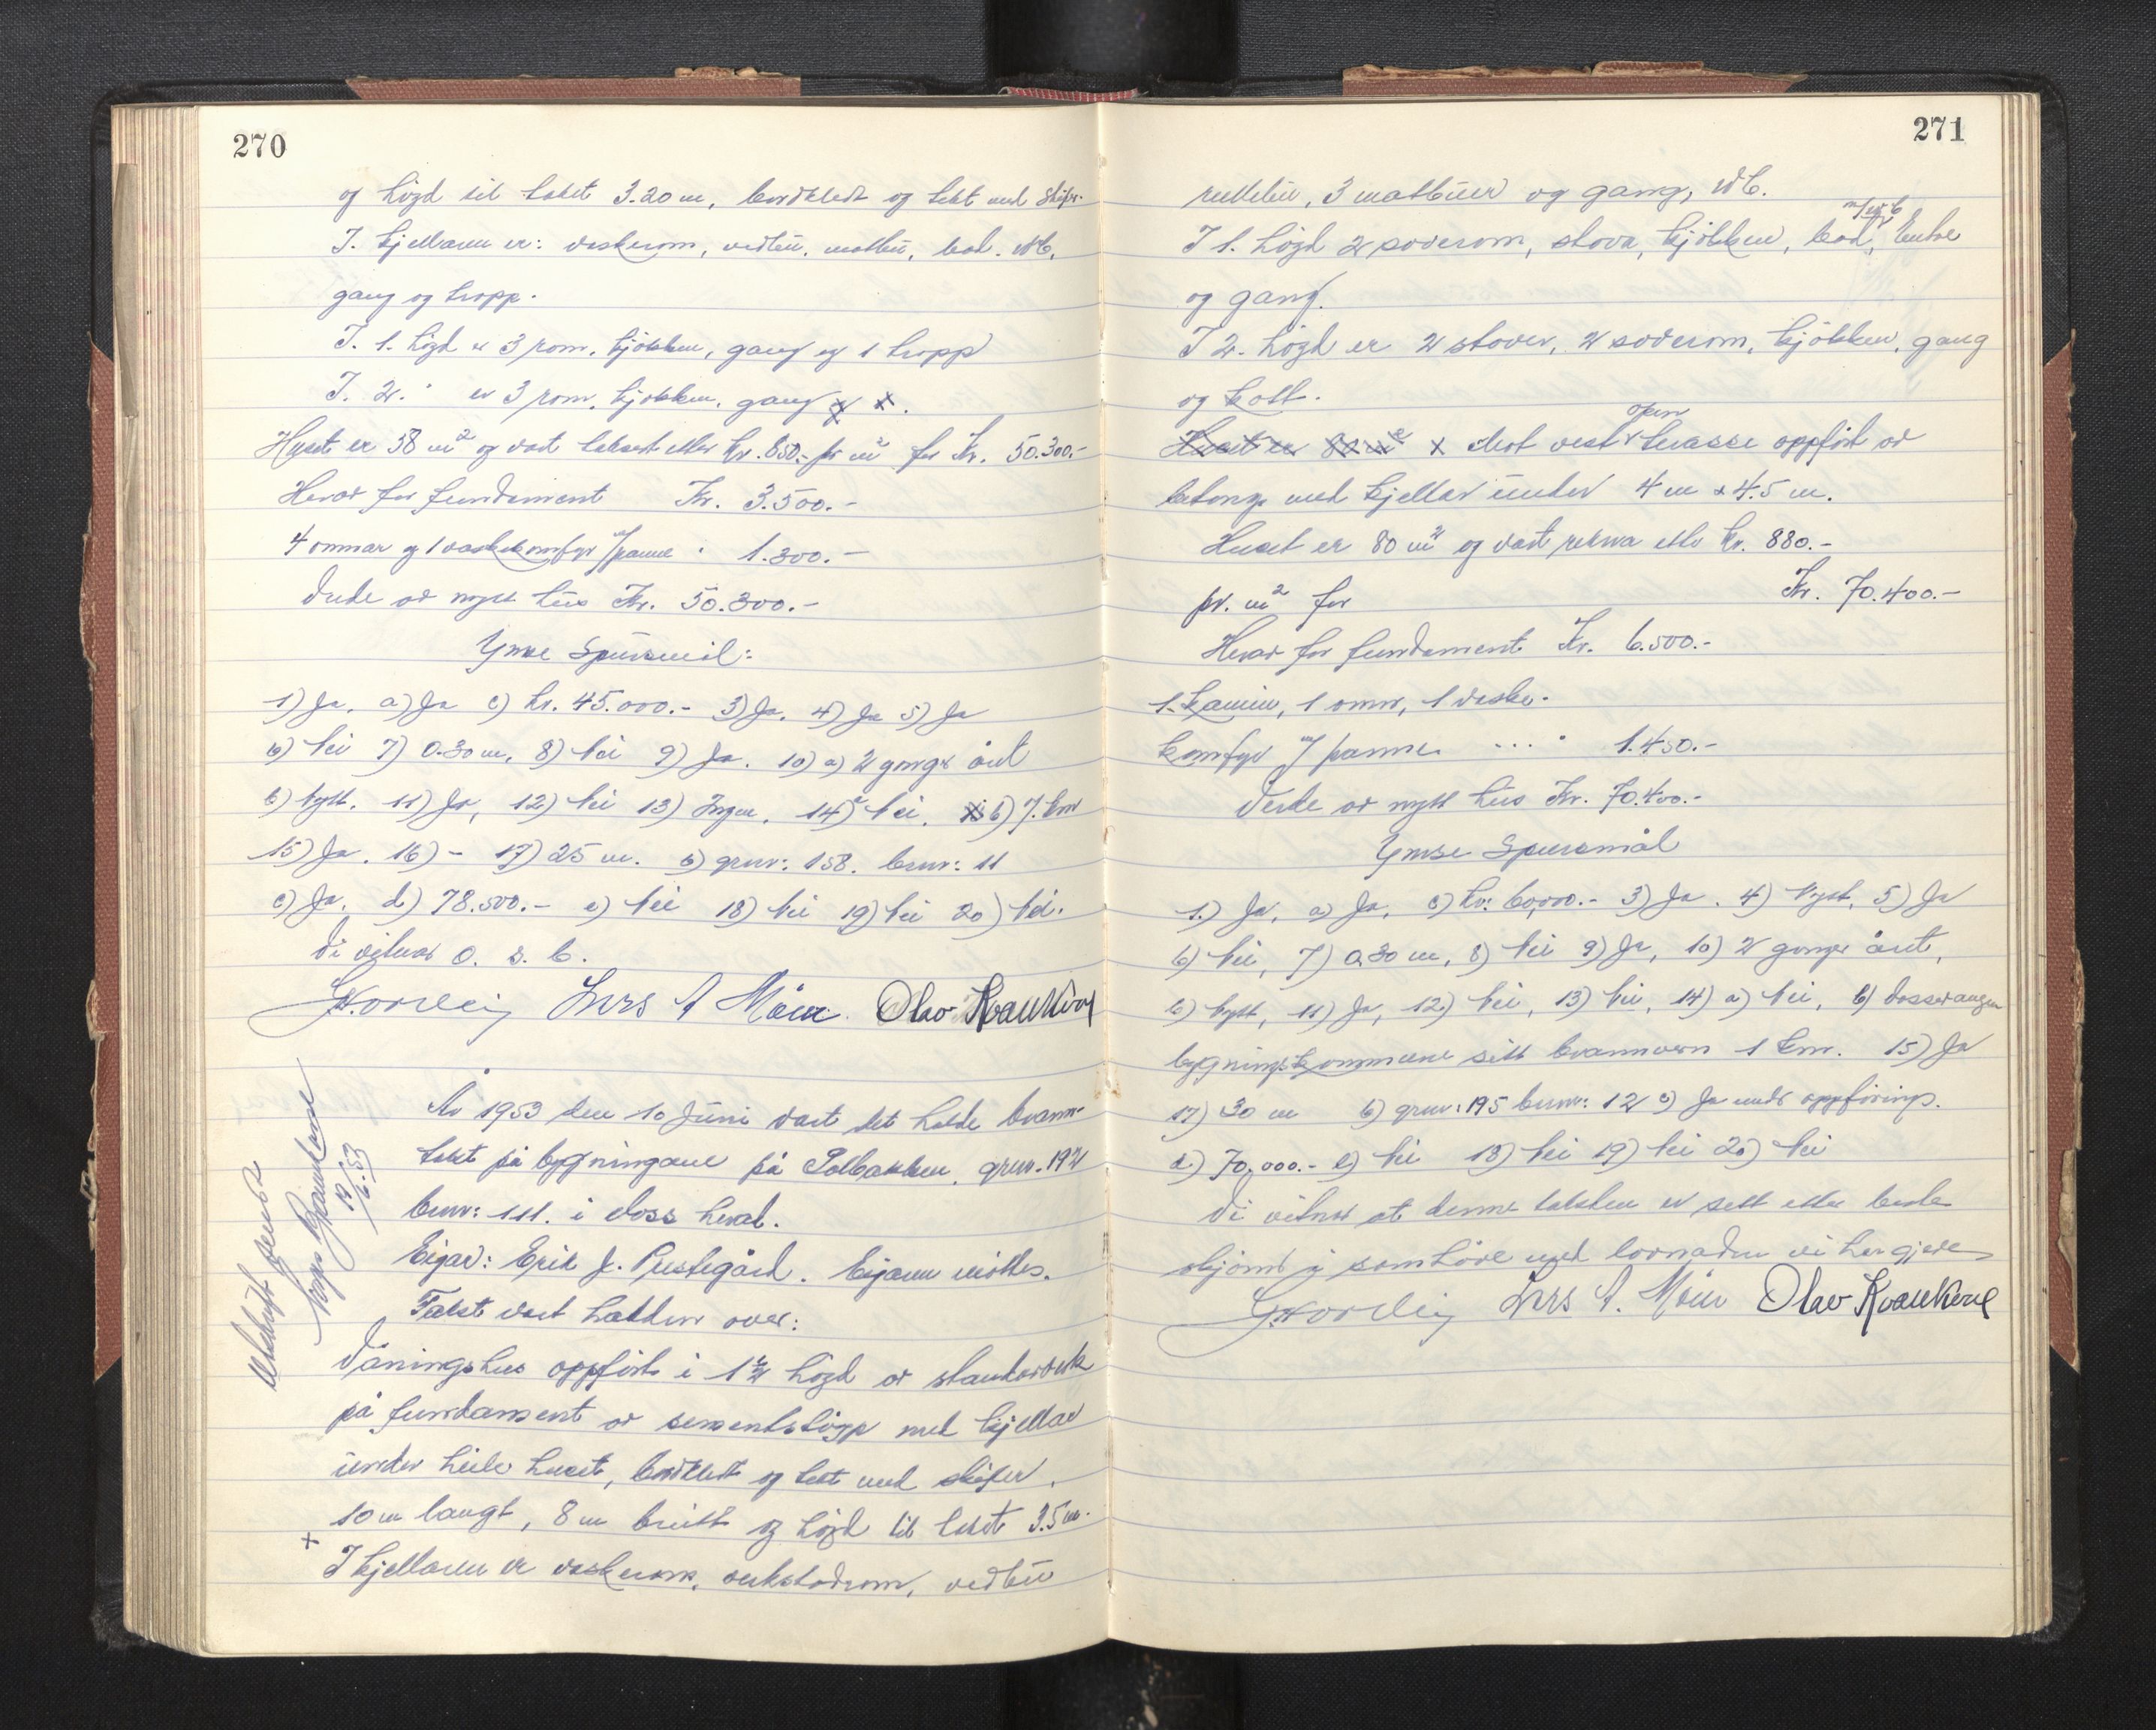 270
og högd til taket 3.20 m, bordkledt og tekt med skifer.
I. kjellaren er: vaskerom, vedbu, matbu, bad. W.C,
gang og tropp.
I. 1. högd er 3 rom, kjökken, gang og 1 tropp
I. 2. " er 3 rom, kjökken, gang
Huset er 58 m² og vart taksert etter kr. 850.- pr m² for Kr. 50.300.-
Herav for fundament Kr. 3.500.-
4 omnar og 1 vaskekomfyr m/panne " 1.300.-
Verde av nytt hus Kr. 50.300.-
Ymse Spursmål:
1) Ja, a) Ja c) kr. 45.000.- 3) Ja, 4) Ja 5) Ja
6) Nei 7) 0.30 m, 8) Nei 9) Ja. 10) a) 2 gonger året
b) Nytt. 11) Ja, 12) Nei 13) Ingen, 14) Nei, b) 7. km
15) Ja. 16) - 17) 25 m. b) gnr: 158. bnr: 11
c) Ja, d) 78.500.- e) Nei 18) Nei 19) Nei 20) Nei.
Vi vitnar o. s. b.
Lars A Møen Olav Kvankvoe
År 1953 den 10 Juni vart det halde brann-
takst på bygningane på Solbakken, gnr. 192
bnr: 111. i Voss herad.
Eigar: Erik J. Prestegård. Eigaren møtte.
Takst vart halden over:
Våningshus oppfört i 1½ högd av stavkverk
på fundament av sementstöyp med kjellar
under heile huset, bordkledt og tekt med skifer.
10 m langt, 8 m breitt og högd til taket 3.5 m.
+
I kjellaren er vaskerom, verkstadrom, vedbu
Utskrift sendt
12/6.53
271
rullebu, 3 matbuer og gang, W.C.
m/W.C
I 1. högd 2 soverom, stova, kjökken, bad, Entre
og gang.
I 2. högd er 2 stover, 2 soverom, kjökken, gang
og kott.
open
Huset er 80 m² x Mot vest terasse oppfört av
betong med kjellar under 4 m x 4.5 m.
Huset er 80 m² og vart rekna etter kr. 880.-
pr. m² for Kr. 70.400.-
Herav for fundament Kr. 6.500.-
1. kamin, 1 omn, 1 vaske-
komfyr m/ panne ... " 1.450.-
Verde av nytt hus Kr. 70.400.-
Ymse Spursmål
1.) Ja, a) Ja, c) kr: 60,000.- 3) Ja. 4) Nytt, 5) Ja
6) Nei, 7) 0.30 m, 8) Nei 9) Ja, 10) 2 gonger året,
b) Nytt, 11) Ja, 12) Nei, 13) Nei, 14) a) Nei, b) Vossevangen
bygningskommune sitt brannvern 1 km. 15) Ja
17) 30 m b) gnr: 195 bnr: 12 c) Ja under oppföring.
d) 70,000.- e) Nei 18) Nei 19) Nei 20) Nei
Vi vitnar at denne taksten er sett etter beste
skjönn i samhöve med lovnaden vi har gjeve
Lars A. Møen Olav Kvankvoe